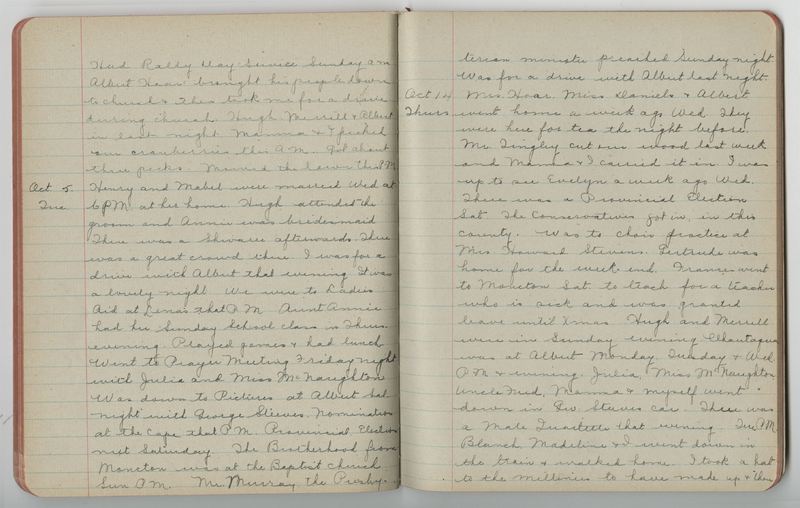 Had Rally Day Service Sunday a.m.
Albert Hoar brought his people down
to church & then took me for a drive
during church. Hugh Merrill & Albert
in last night. Mamma & I picked
our cranberries this A.M. Got about
three pecks. Mowed the lawn this P.M.
Oct 5 Henry and Mabel were married Wed at
Tue 6 P.M. at her home. Hugh attended the
groom and Annie was bridesmaid
There was a Shivaree afterwards. There
was a great crowd there. I was for a
drive with Albert that evening. It was
a lovely night. We were to Ladies
Aid at Lena's that P.M. Aunt Annie
had her Sunday School class in Thurs.
evening. Played games & had lunch
Went to Prayer Meeting Friday night
with Julia and Miss McNaughton
Was down to Pictures at Albert Sat.
night with George Stieves. Nomination
at the Cape that P.M. Provincial Election
next Saturday. The Brotherhood from
Moncton was at the Baptist church
Sun A.M. Mr. Murray the Presby-
terian minister preached Sunday night.
Was for a drive with Albert last night.
Oct 14 Mrs. Hoar, Miss Daniels & Albert
Thurs went home a week ago Wed. They
were here for tea the night before.
Mr. Tingley cut our wood last week
and Mamma & I carried it in. I was
up to see Evelyn a week ago Wed.
There was a Provincial Election
Sat. The Conservatives got in, in this
county. Was to choir practice at
Mrs Howard Stevens. Gertrude was
home for the week end. Frances went
to Moncton Sat. to teach for a teacher
who is sick and was granted
leave until Xmas. Hugh and Merrill
were in Sunday evening. Chautauqua
was at Albert Monday Tuesday & Wed.
P.M. & evening. Julia, Miss McNaughton,
Uncle Fred, Mamma & myself went
down in Geo Steves car. There was
a Male Quartette that evening. Tue P.M.
Blanch, Madeline & I went down in
the train & walked home. I took a hat
to the milleners to have made up &